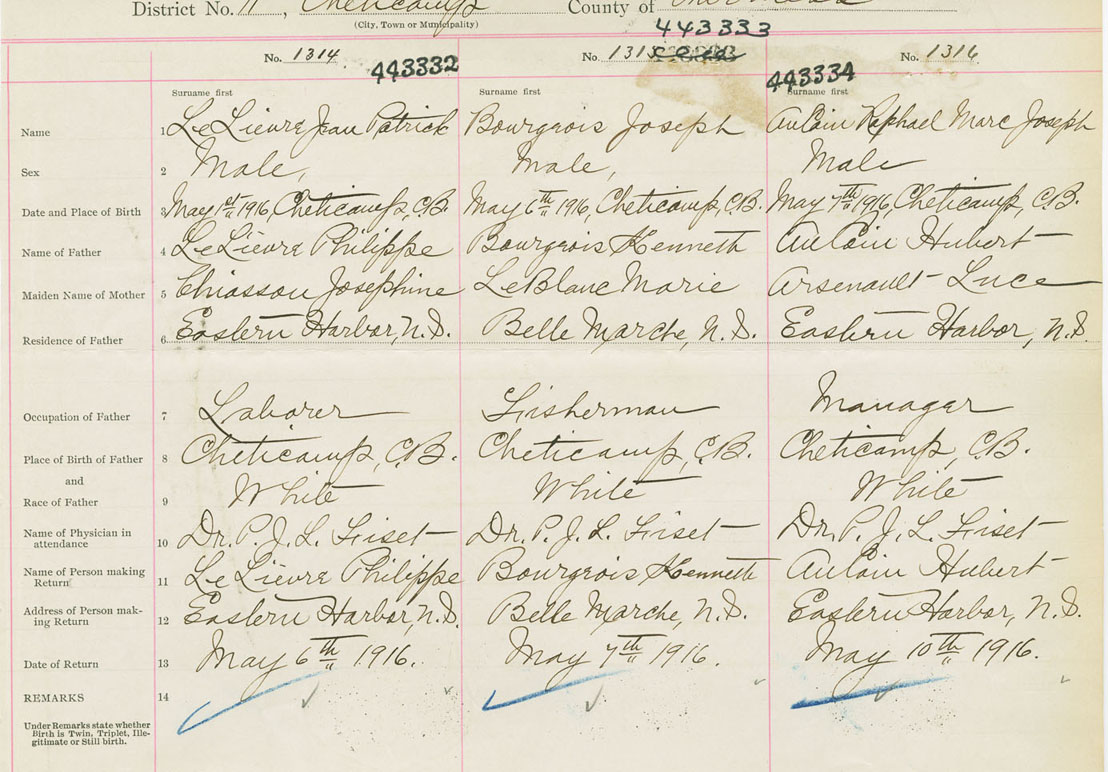 District No. 11, Cheticamp County of Inverness
(City, Town or Municipality)
443333
No. 1314 No. 1315 No. 1316
443332 443334
Surname first Surname first Surname first
Name 1 LeLievre Jean Patrick Bourgeois Joseph AuCoin Raphael Marc Joseph
Sex 2 Male, Male, Male
Date and Place of Birth 3 May 1st 1916, Cheticamp, C.B. May 6th 1916, Cheticamp, C.B. May 7th 1916, Cheticamp, C.B.
Name of Father 4 LeLievre Philippe Bourgeois Kenneth AuCoin Hubert
Maiden Name of Mother 5 Chiasson Josephine LeBlanc Marie Arsenault Luce
Residence of Father 6 Eastern Harbor, N.S. Belle Marche, N.S. Eastern Harbor, N.S.
Occupation of Father 7 Laborer Fisherman Manager
Place of Birth of Father 8 Cheticamp, C.B. Cheticamp, C.B. Cheticamp, C.B.
and
Race of Father 9 White White White
Name of Physician in
attendance 10 Dr. P. J. L. Fiset Dr. P. J. L. Fiset Dr. P. J. L. Fiset
Name of Person making
Return 11 LeLievre Philippe Bourgeois Kenneth AuCoin Hubert
Address of Person mak-
ing Return 12 Eastern Harbor, N.S. Belle Marche, N.S. Eastern Harbor, N.S.
Date of Return 13 May 6th 1916. May 7th 1916. May 10th 1916.
REMARKS 14
Under Remarks state whether
Birth is Twin, Triplet, Ille-
gitimate or Still birth.